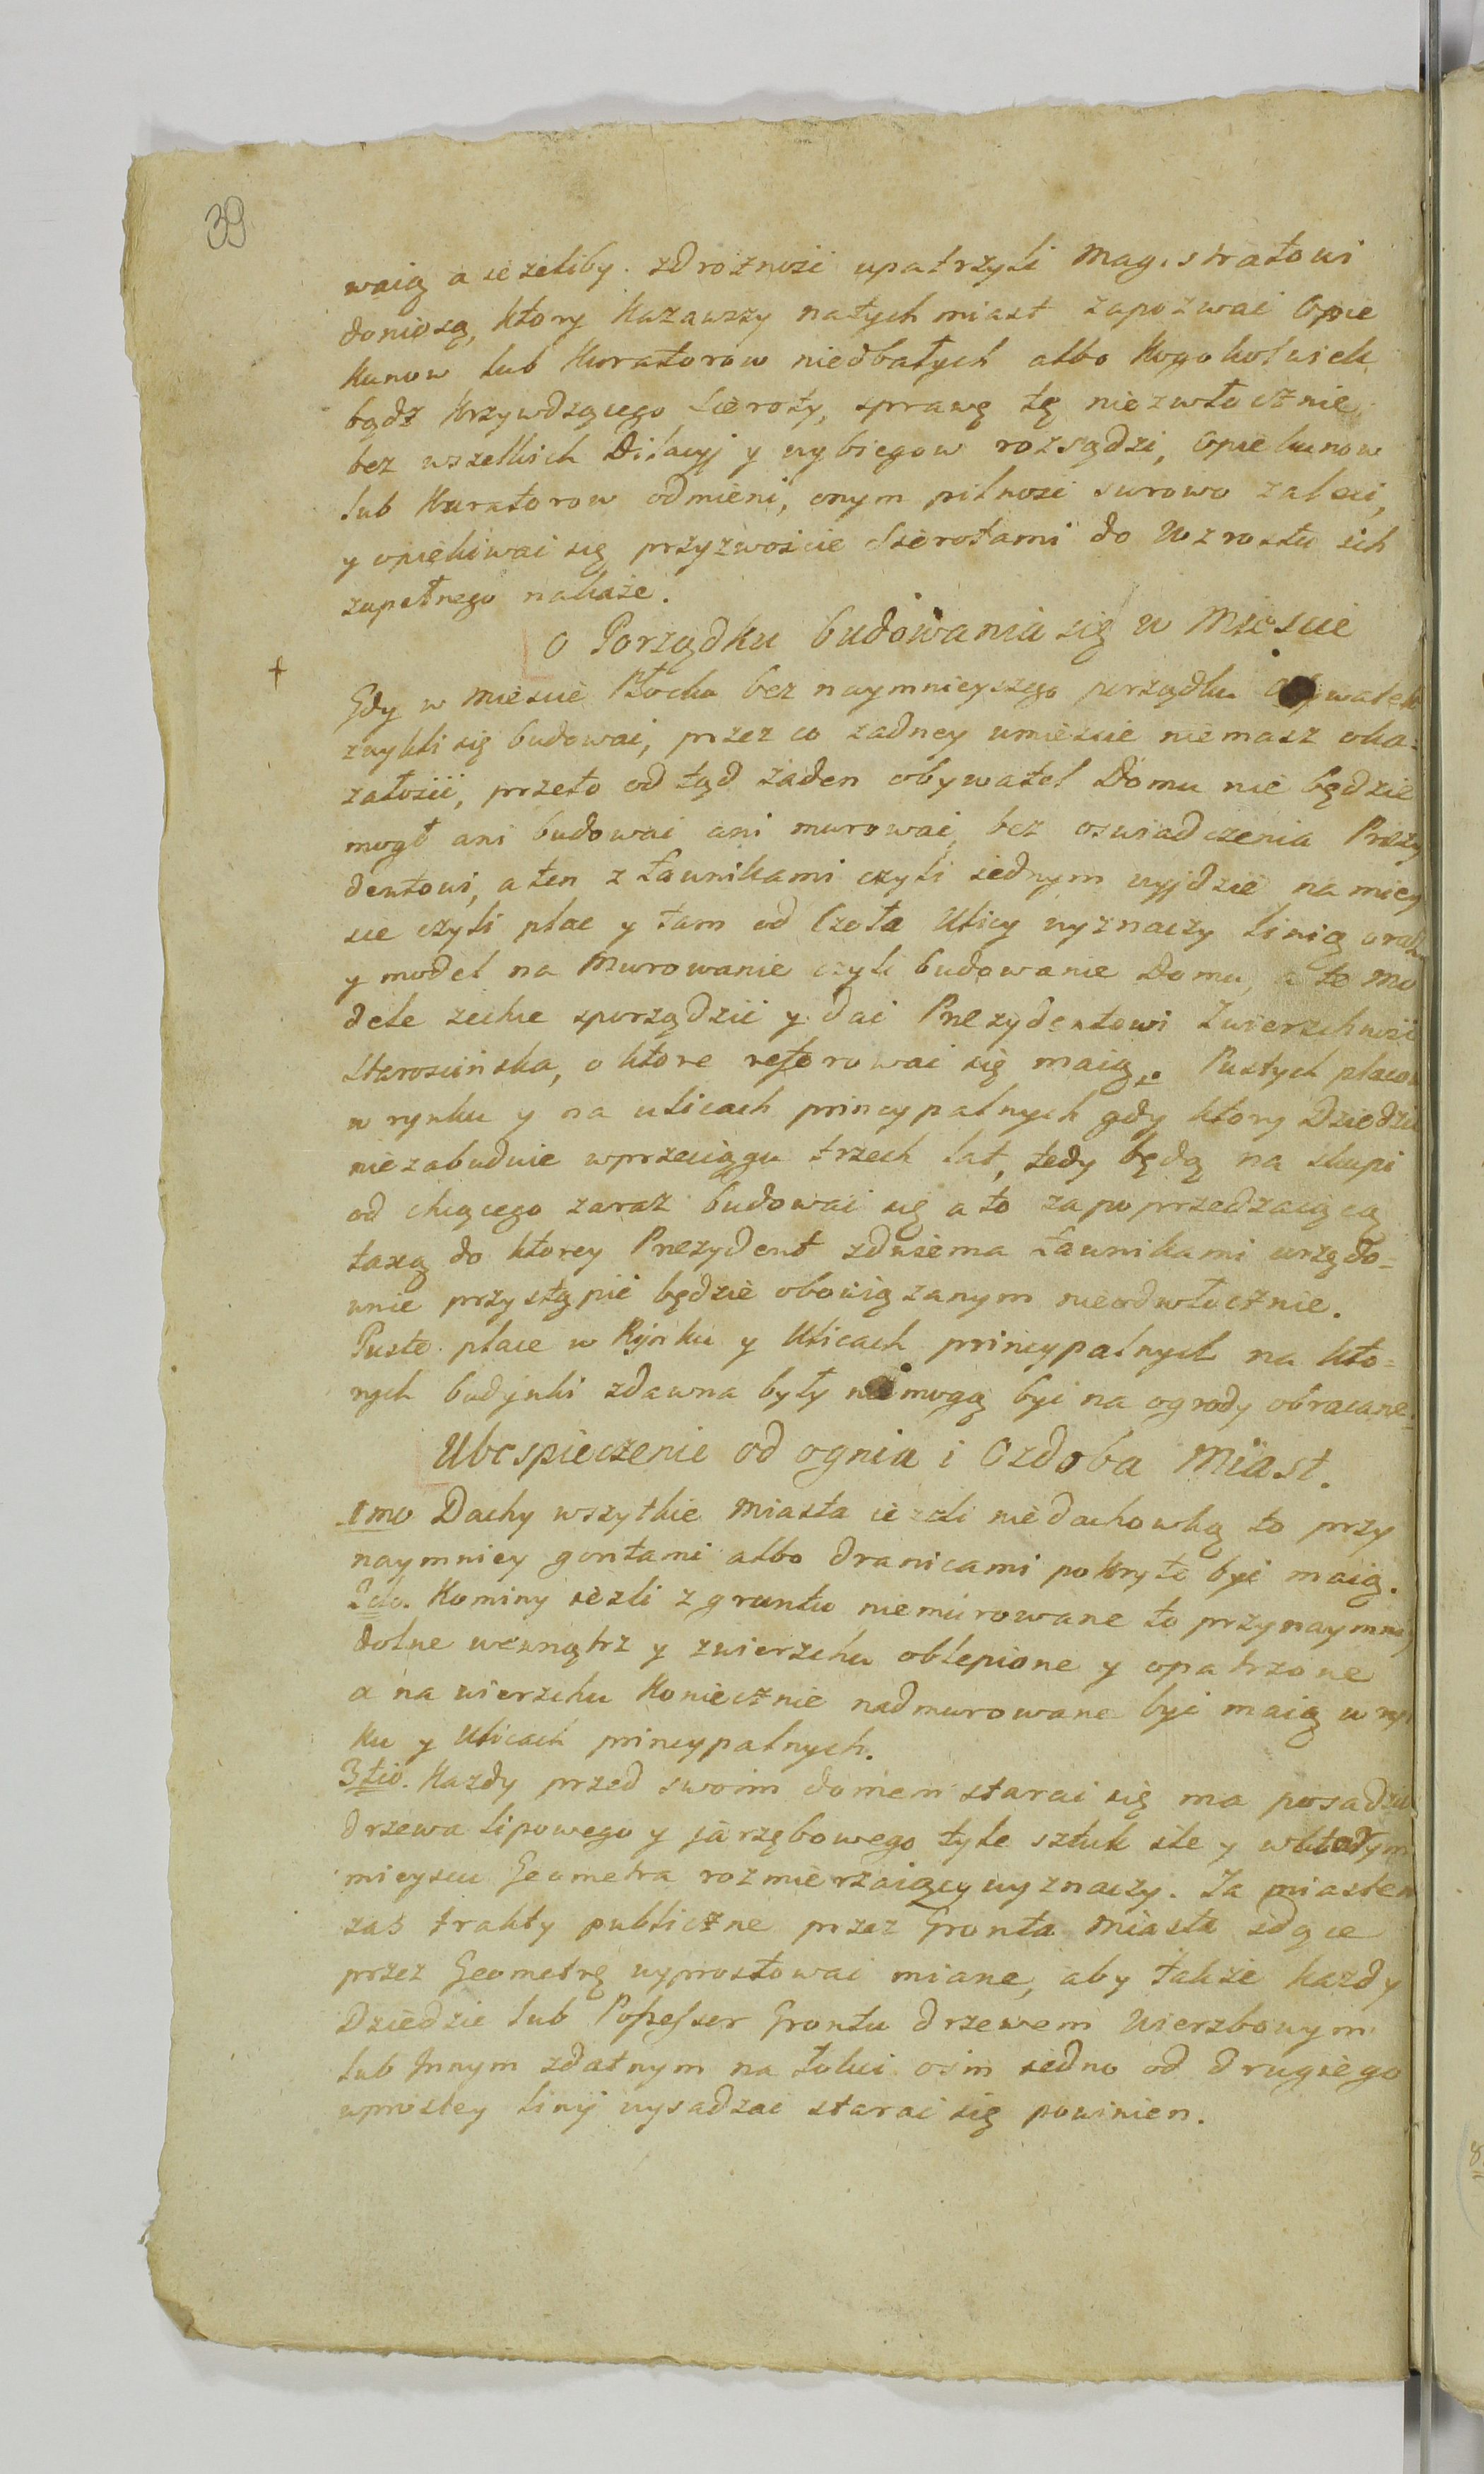 39
waią a ieżeliby zdrożność upatrzyli Magistratowi
doniosą, ktory kazawszy natychmiast zapozwać Opie
kunow lub Kuratorow niedbałych albo kogokolwiek
bądź krzywdzącego Sieroty, sprawę tę niezwłocznie
bez wszelkich Dilacyj y wybiegow rozsądzi, Opiekunow
lub Kuratorow odmieni, onym pilność surowo zaleci,
y opiekiwać się przyzwoicie Sierotami do Wzrostu ich
zupełnego nakaże.
O Porządku budowania się w Miescie
+
Gdy w Miescie Płocku bez naymnieyszego porządku
zwykli się budować, przez co żadney wmiescie niemasz oka=
załości, przeto od tąd żaden obywatel Domu nie będzie
mogł ani budować ani murować, bez oswiadczenia Prezy
dentowi, a ten z Ławnikami czyli iednym wyjdzie na miey
sce czyli plac y tam od Czoła Ulicy wyznaczy linią oraz
y model na Murowanie czyli budowanie Domu, a te Mo
dele zechce sporządzić y dać Prezydentowi Zwierzchność
Starościńska, o ktore referować się maią. Pustych placow
w rynku y na ulicach pryncypalnych gdy ktory Dziedzic
niezabuduie wprzeciągu trzech lat, tedy będą na skupi
od chcącego zaraz budować się a to za poprzedzaiącą
taxą do ktorey Prezydent zdwiema Ławnikami urzędo=
wnie przystąpić będzie obowiązanym nieodwłocznie.
Puste place w Rynku y Ulicach pryncypalnych na kto=
rych budynki zdawna były nie mogą być na ogrody obracane.
Ubespieczenie od ognia i Ozdoba Miast.
1mo Dachy wszytkie Miasta ieżeli niedachowką to przy
naymniey gontami albo dranicami pokryte być maią.
2do. Kominy ieżli z gruntu niemurowane to przynaymniey
dolne wewnątrz y zwierzchu oblepione y opatrzone
a na wierzchu koniecznie nadmurowane być maią w ryn
ku y Ulicach pryncypalnych.
3tio. Każdy przed swoim domem starać się ma posadzić
drzewa lipowego y jarzębowego tyle sztuk ile y wktorym
mieyscu Geometra rozmierzaiący wyznaczy. Za miastem
zas trakty publiczne przez Gronta Miasta idące
przez Geometrę wyprostować miane, aby także każdy
Dziedzic lub Possessor Grontu drzewem Wierzbowym
lub Innym zdatnym na łokci osm iedno od drugiego
wprostey linij wysadzać starać się powinien.